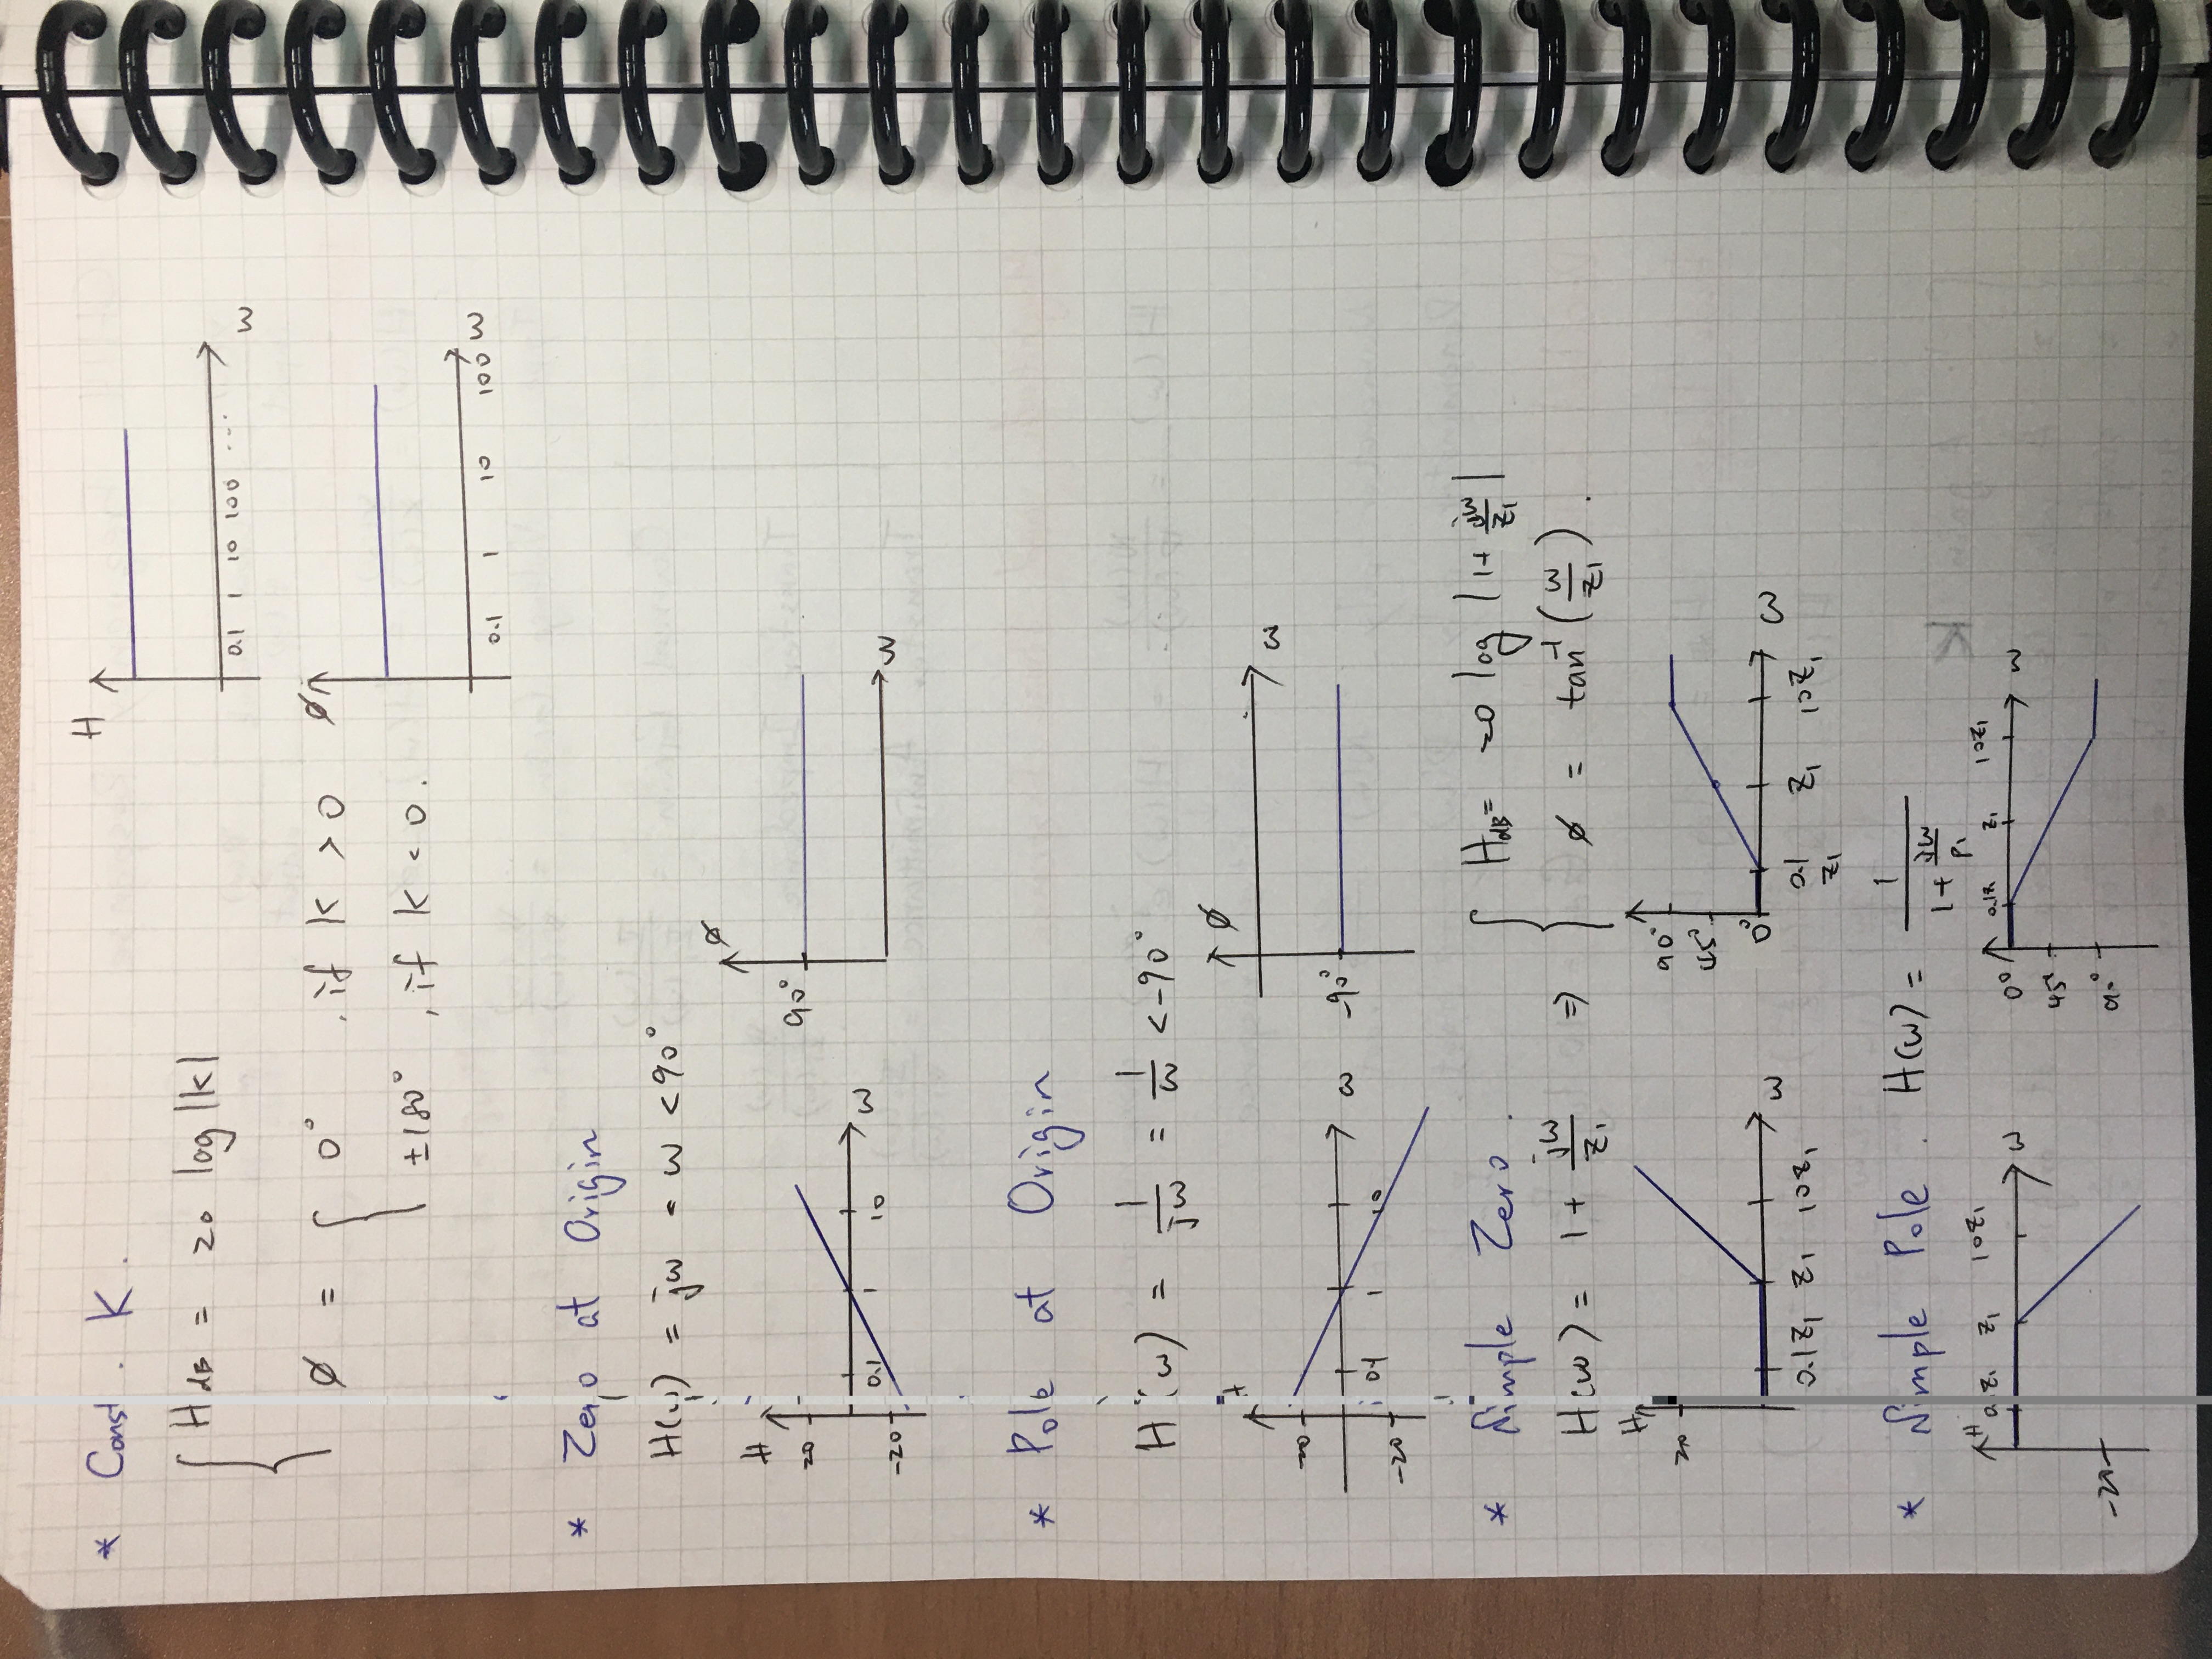 * Const. K.
H_dB = 20 log |K|
φ = { 0° , if K > 0
±180° , if K < 0.
H
0.1 1 10 100 ... ω
φ
0.1 1 10 100 ω
* Zero at Origin
H(ω) = jω = ω <90°
H
20
-20
0.1 1 10 ω
φ
90°
ω
* Pole at Origin
H(ω) = 1/jω = 1/ω <-90°
H
20
-20
0.1 1 10 ω
φ
-90°
ω
* Simple Zero.
H(ω) = 1 + jω/z₁ ⇒ { H_dB = 20 log |1 + jω/z₁|
φ = tan⁻¹ (ω/z₁).
H
20
0.1z₁ z₁ 10z₁ ω
90°
45°
0°
0.1z₁ z₁ 10z₁ ω
* Simple Pole. H(ω) = 1/(1 + jω/p₁)
H
-20
0.1z₁ z₁ 10z₁ ω
0°
45°
90°
0.1z₁ z₁ 10z₁ ω